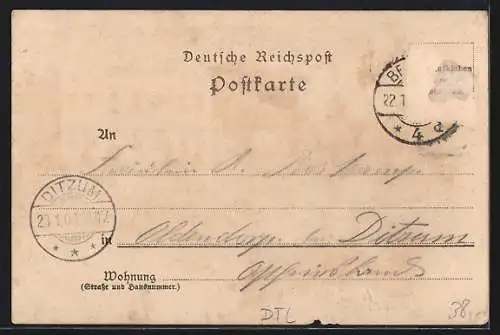 Deutsche Reichspost
Postkarte
22.1
* 4 d
An
Fräulein
DITZUM
23.1.0
* * *
in Oldendorp bei Ditzum
Ostfriesland
Wohnung
(Straße und Hausnummer.)
DTL
38,